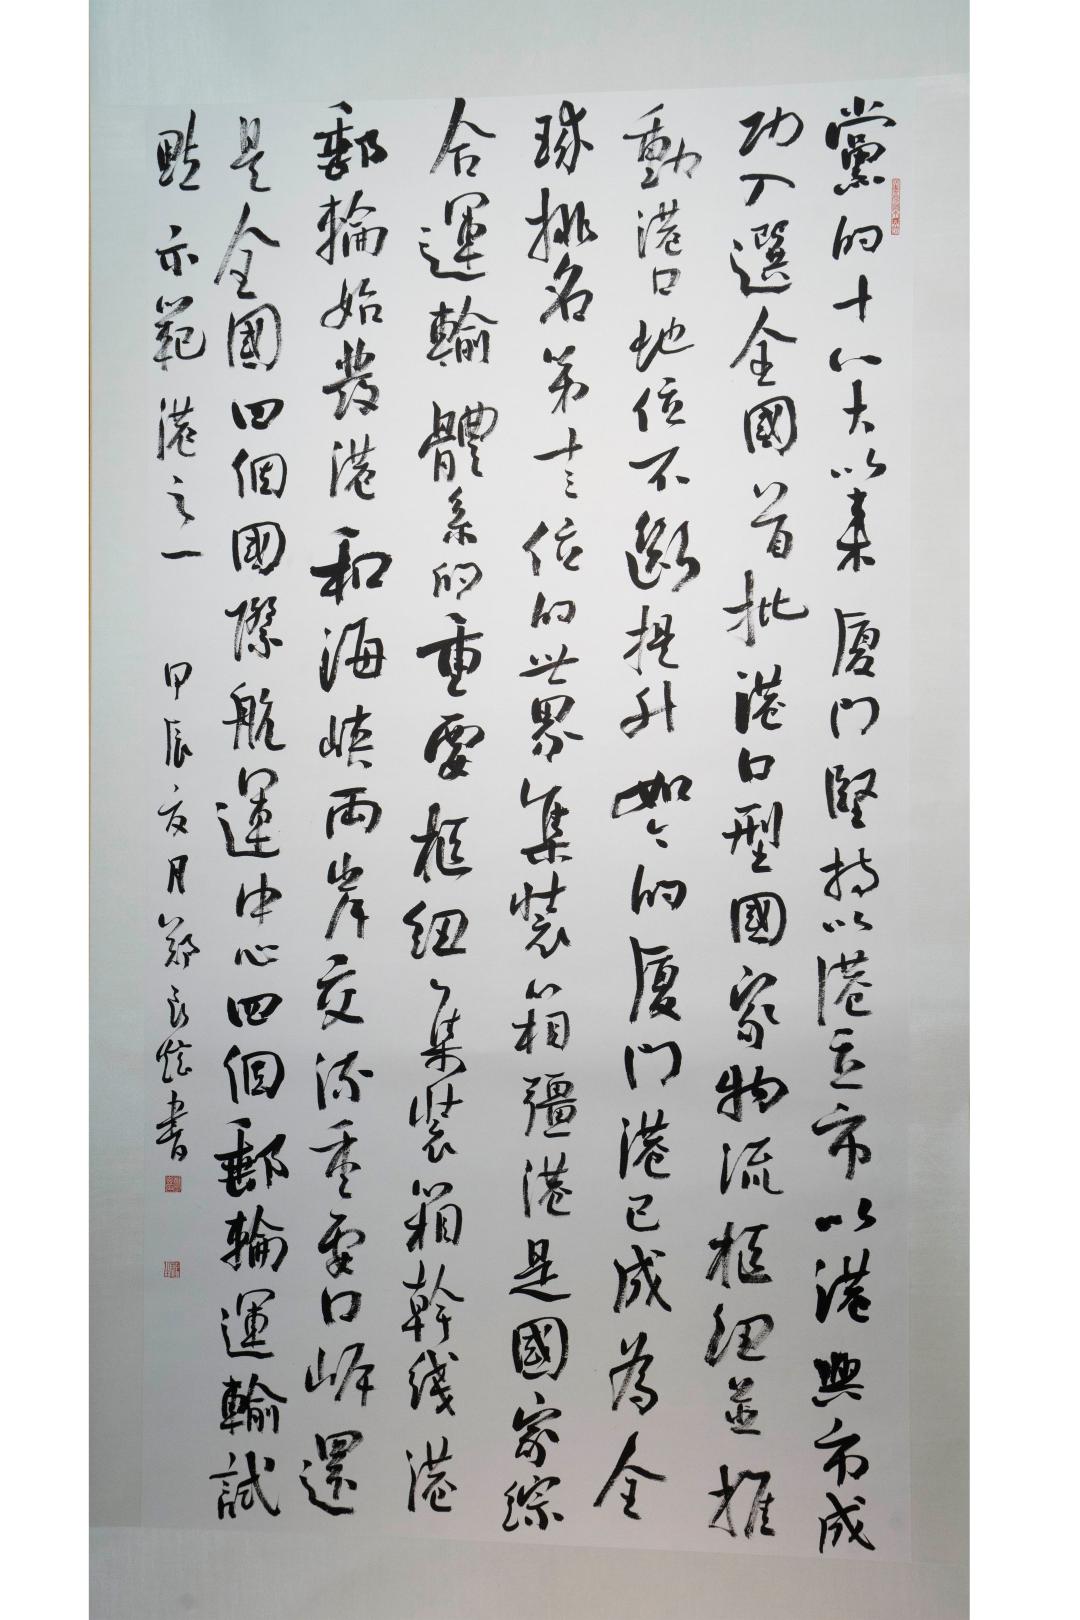 黨的十八大以來厦門堅持以港立市以港興市成
功入選全國首批港口型國家物流樞紐並推
動港口地位不斷提升如今的厦門港已成為全
球排名第十三位的世界集裝箱疆港是國家綜
合運輸體系的重要樞紐集裝箱幹线港
郵輪始發港和海峽兩岸交流重要口岸還
是全國四個國際航運中心四個郵輪運輸試
點示範港之一 甲辰 月鄭良 書